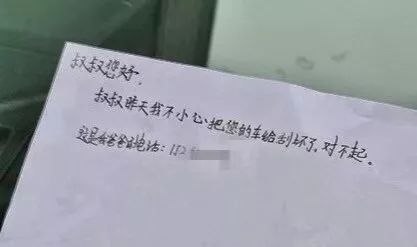 叔叔您好，
叔叔昨天我不小心把您的车给刮坏了，对不起。
这是我爸爸电话：152